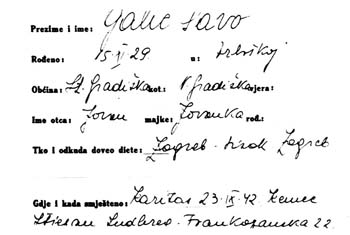 Prezime i ime: Galic Savo
Rođeno: 15 XI 29. u:
Općina: St. Gradiška kot.: N Gradiška vjera:
Ime otca: Jovan majke: Jovanka rođ.:
Tko i odkuda doveo diete: Zagreb - Sisak Zagreb
Gdje i kada smješteno: Karitas 23. IX. 42. Nemec
Stjepan Ludbreg - Frankopanska 22.